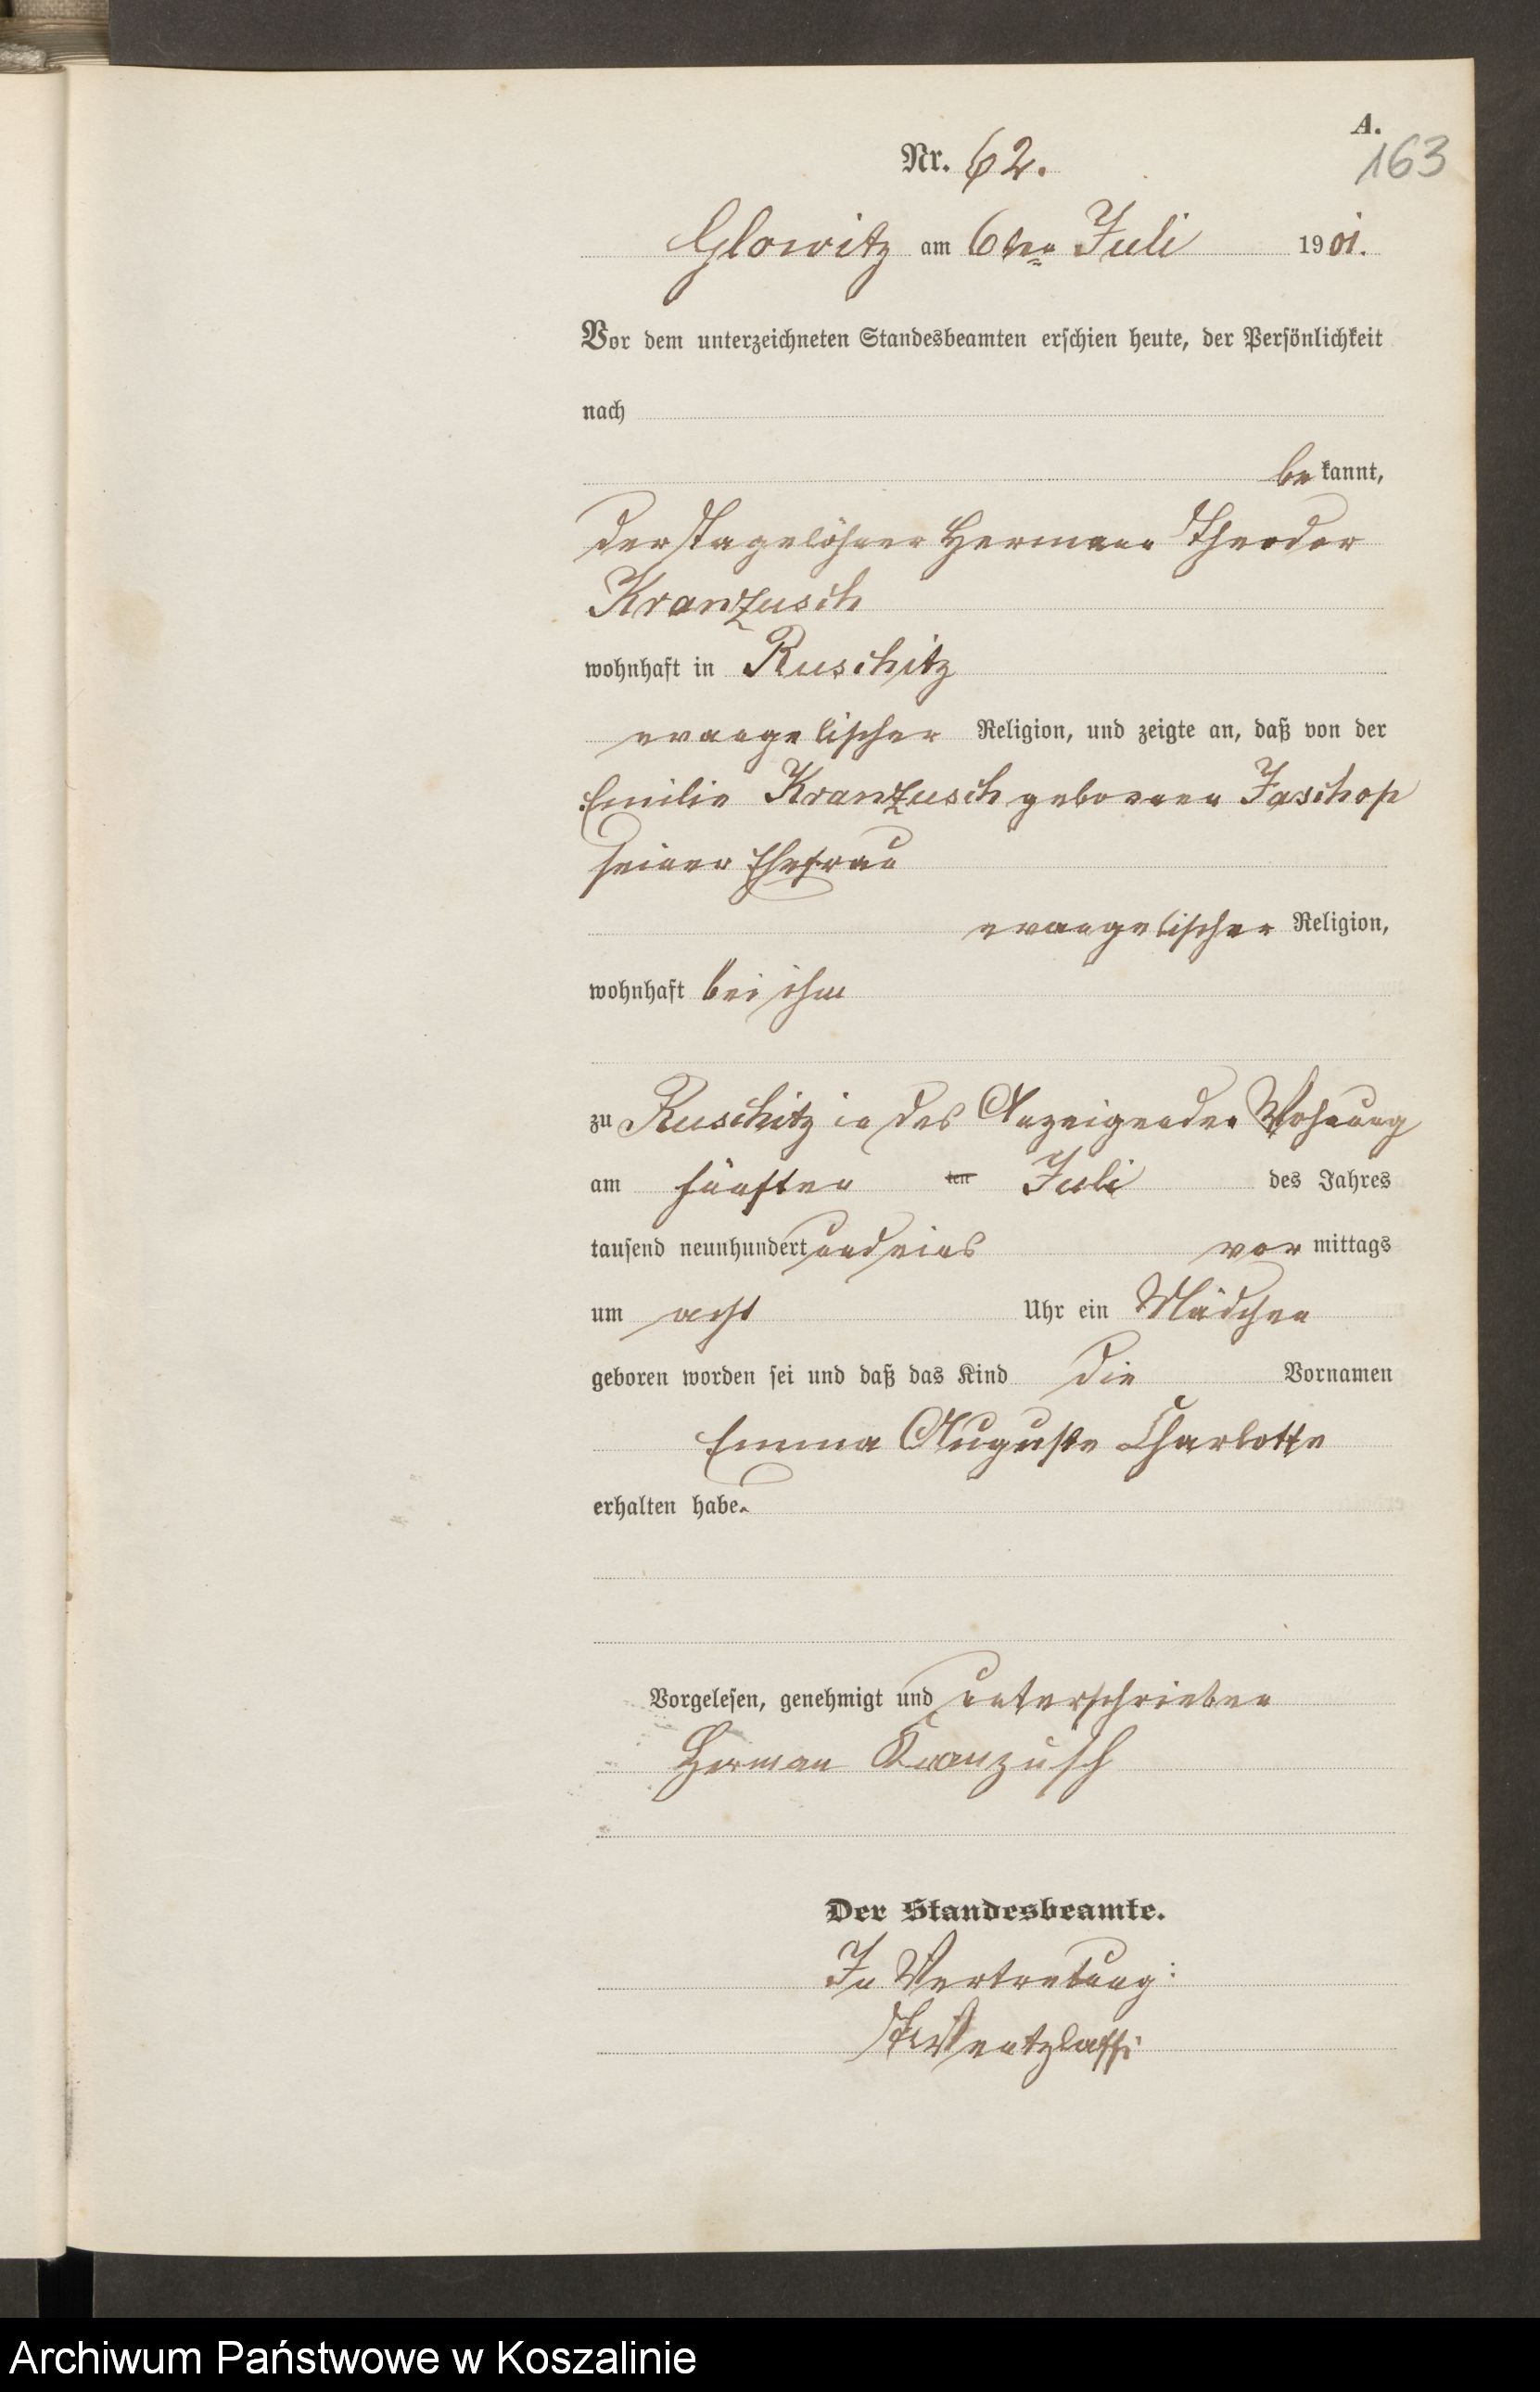 A.
163
Nr. 62.
Glowitz am 6ten Juli 1901.
Vor dem unterzeichneten Standesbeamten erschien heute, der Persönlichkeit
nach
bekannt,
der Tagelöhner Hermann Theodor
Kranzusch
wohnhaft in Ruschitz
evangelischer Religion, und zeigte an, daß von der
Emilie Kranzusch geborenen Jaschop
seiner Ehefrau
evangelischer Religion,
wohnhaft bei ihm
zu Ruschitz in des Anzeigenden Wohnung
am fünften ten Juli des Jahres
tausend neunhundert und eins vor mittags
um acht Uhr ein Mädchen
geboren worden sei und daß das Kind die Vornamen
Emma Auguste Charlotte
erhalten habe.
Vorgelesen, genehmigt und unterschrieben
Herman Kranzusch
Der Standesbeamte.
In Vertretung:
Wentzlaff
Archiwum Państwowe w Koszalinie